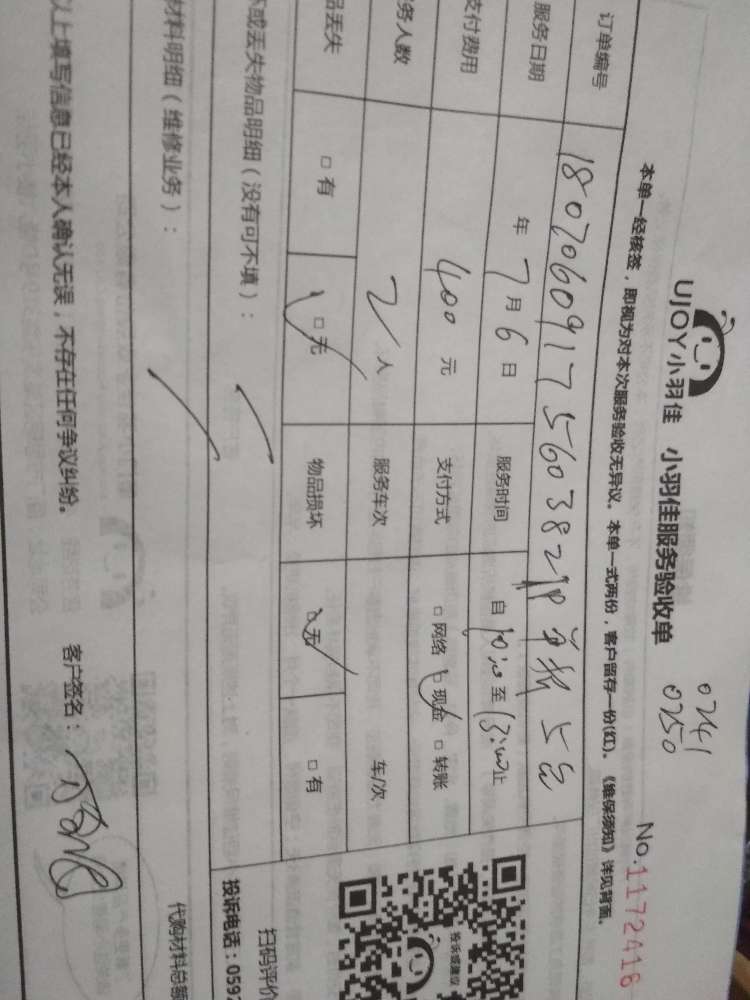 UJOY小羽佳 小羽佳服务验收单
0241
0250
No.1172416
本单一经核签，即视为对本次服务验收无异议。本单一式两份，客户留存一份(红)。《维保须知》详见背面。
订单编号
服务日期 年 7月6日 服务时间 自 10:00 至 13:00止
支付费用 400 元 支付方式 □ 网络 □ 现金 □ 转账
务人数 2 人 服务车次 车/次
品丢失 □ 有 □ 无 物品损坏 □ 无 □ 有
坏或丢失物品明细（没有可不填）：
材料明细（维修业务）：
扫码评价
投诉电话：0592
投诉或建议
代购材料总额
以上填写信息已经本人确认无误，不存在任何争议纠纷。 客户签名：